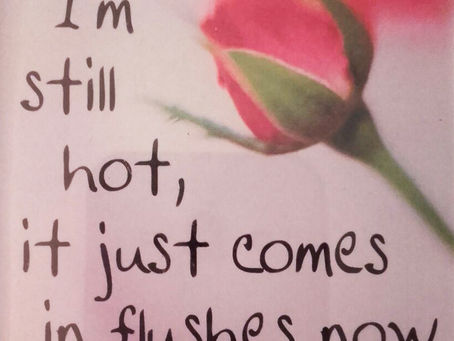 I'm
still
hot,
it just comes
in flushes now